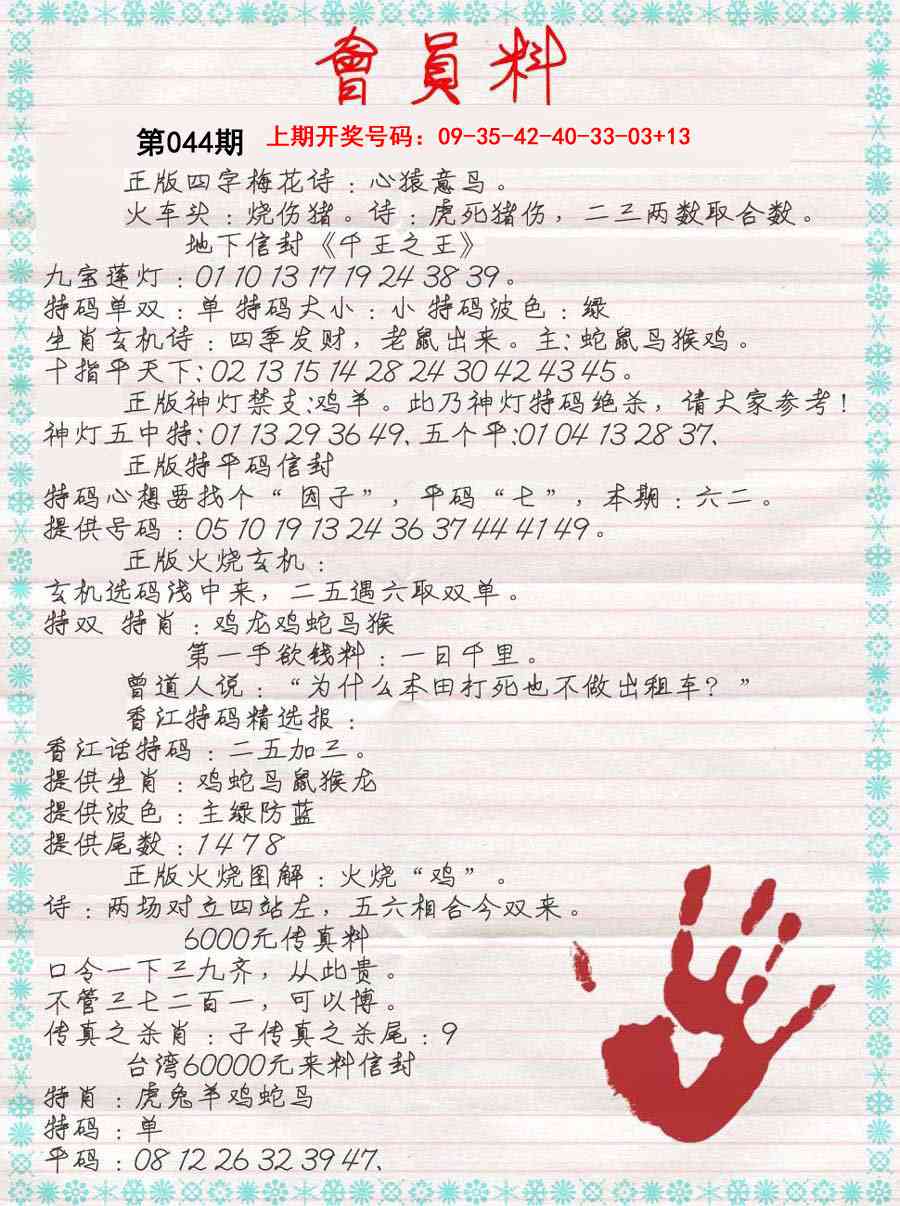 會員料
第044期 上期开奖号码：09-35-42-40-33-03+13
正版四字梅花诗：心猿意鸟。
火车头：烧伤猪。诗：虎死猪伤，二三两数取合数。
地下信封《千王之王》
九宝莲灯：01 10 13 17 19 24 38 39。
特码单双：单 特码大小：小 特码波色：绿
生肖玄机诗：四季发财，老鼠出来。主：蛇鼠鸟猴鸡。
十指平天下：02 13 15 14 28 24 30 42 43 45。
正版神灯禁支：鸡羊。此乃神灯特码绝杀，请大家参考！
神灯五中特：01 13 29 36 49、五个平：01 04 13 28 37、
正版特平码信封
特码心想要找个“因子”，平码“七”，本期：六二。
提供号码：05 10 19 13 24 36 37 44 41 49。
正版火烧玄机：
玄机选码浅中来，二五遇六取双单。
特双 特肖：鸡龙鸡蛇马猴
第一手欲钱料：一日千里。
曾道人说：“为什么本田打死也不做出租车？”
香江特码精选报：
香江话特码：二五加三。
提供生肖：鸡蛇马鼠猴龙
提供波色：主绿防蓝
提供尾数：1 4 7 8
正版火烧图解：火烧“鸡”。
诗：两场对立四站左，五六相合今双来。
6000元传真料
口令一下三九齐，从此贵。
不管三七二百一，可以博。
传真之杀肖：子传真之杀尾：9
台湾60000元来料信封
特肖：虎兔羊鸡蛇马
特码：单
平码：08 12 26 32 39 47、